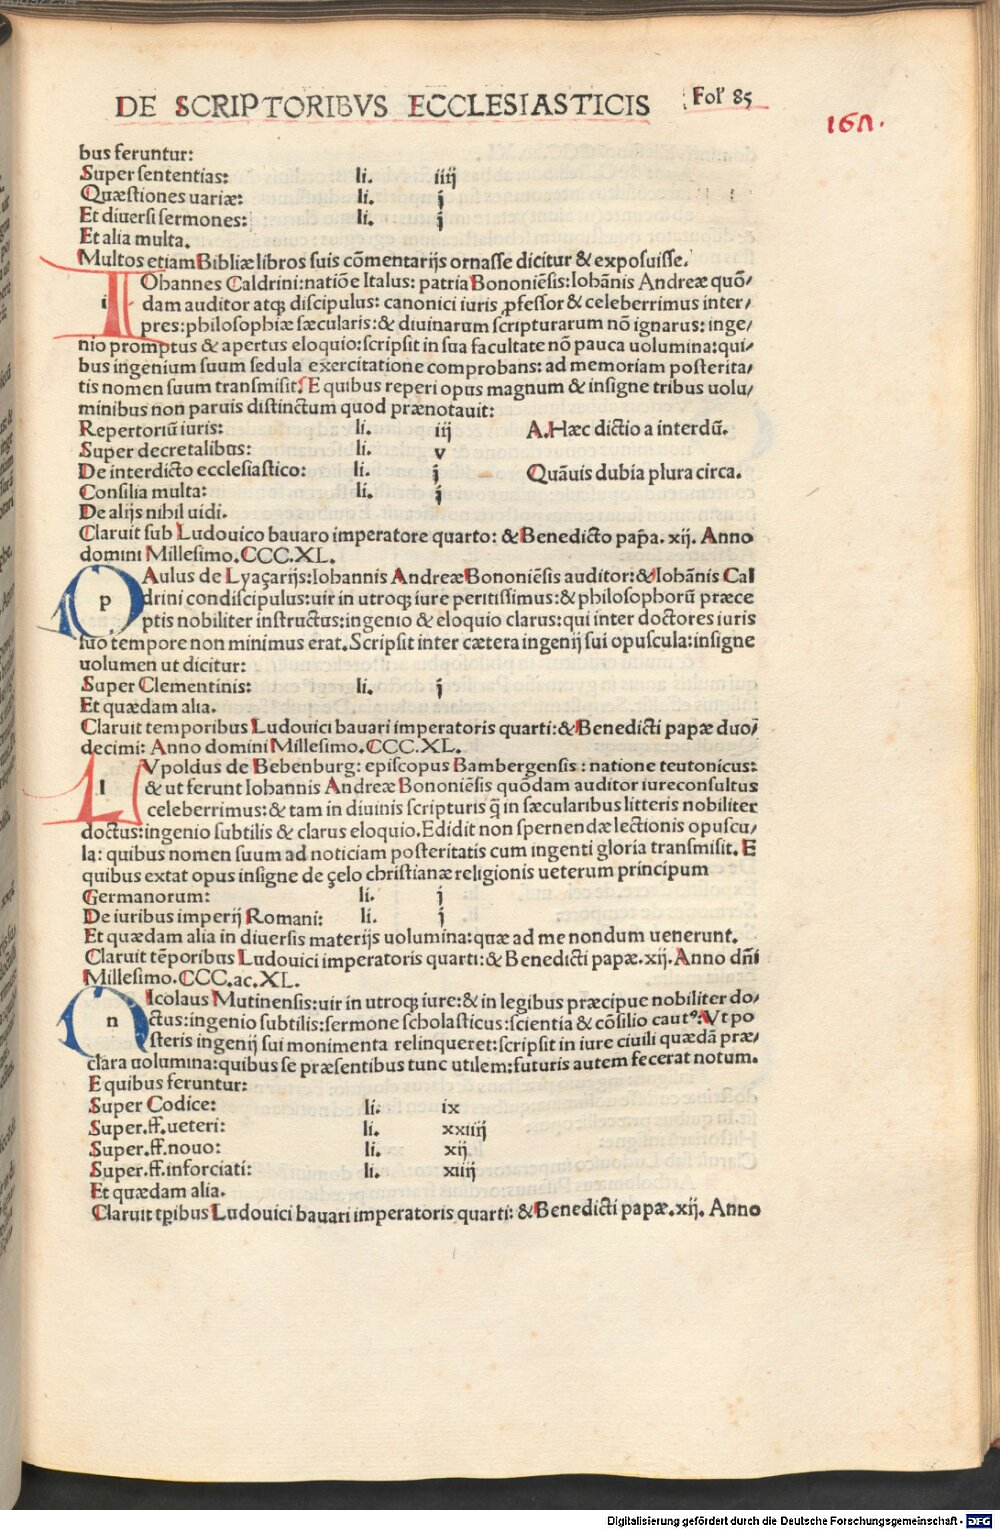 DE SCRIPTORIBVS ECCLESIASTICIS Fol' 85
167.
bus feruntur:
Super sententias: li. iiij
Quæstiones uariæ: li. j
Et diuersi sermones: li. j
Et alia multa.
Multos etiam Bibliæ libros suis cōmentarijs ornasse dicitur & exposuisse.
i Ohannes Caldrini: natiōe Italus: patria Bononiēsis: Iohānis Andreæ quō/
dam auditor atq; discipulus: canonici iuris ꝓfessor & celeberrimus inter/
pres: philosophiæ sæcularis: & diuinarum scripturarum nō ignarus: inge/
nio promptus & apertus eloquio: scripsit in sua facultate nō pauca uolumina: qui/
bus ingenium suum sedula exercitatione comprobans: ad memoriam posterita/
tis nomen suum transmisit. E quibus reperi opus magnum & insigne tribus uolu/
minibus non paruis distinctum quod prænotauit:
Repertoriū iuris: li. iij A. Hæc dictio a interdū.
Super decretalibus: li. v
De interdicto ecclesiastico: li. j Quāuis dubia plura circa.
Consilia multa: li. j
De alijs nihil uidi.
Claruit sub Ludouico bauaro imperatore quarto: & Benedicto pap̄a. xij. Anno
domini Millesimo. CCC. XL.
p Aulus de Lyaçarijs: Iohannis Andreæ Bononiēsis auditor: & Iohānis Cal
drini condiscipulus: uir in utroq; iure peritissimus: & philosophorū præce
ptis nobiliter instructus: ingenio & eloquio clarus: qui inter doctores iuris
suo tempore non minimus erat. Scripsit inter cætera ingenij sui opuscula: insigne
uolumen ut dicitur:
Super Clementinis: li. j
Et quædam alia.
Claruit temporibus Ludouici bauari imperatoris quarti: & Benedicti papæ duo/
decimi: Anno domini Millesimo. CCC. XL.
l Vpoldus de Bebenburg: episcopus Bambergensis: natione teutonicus:
& ut ferunt Iohannis Andreæ Bononiēsis quōdam auditor iureconsultus
celeberrimus: & tam in diuinis scripturis q̄ in sæcularibus litteris nobiliter
doctus: ingenio subtilis & clarus eloquio. Edidit non spernendæ lectionis opuscu/
la: quibus nomen suum ad noticiam posteritatis cum ingenti gloria transmisit. E
quibus extat opus insigne de çelo christianæ religionis ueterum principum
Germanorum: li. j
De iuribus imperij Romani: li. j
Et quædam alia in diuersis materijs uolumina: quæ ad me nondum uenerunt.
Claruit tēporibus Ludouici imperatoris quarti: & Benedicti papæ. xij. Anno dn̄i
Millesimo. CCC. ac. XL.
n Icolaus Mutinensis: uir in utroq; iure: & in legibus præcipue nobiliter do/
ctus: ingenio subtilis: sermone scholasticus: scientia & cōsilio cautꝰ: Vt po
steris ingenij sui monimenta relinqueret: scripsit in iure ciuili quædā præ/
clara uolumina: quibus se præsentibus tunc utilem: futuris autem fecerat notum.
E quibus feruntur:
Super Codice: li. ix
Super. ff. ueteri: li. xxiiij
Super. ff. nouo: li. xij
Super. ff. inforciati: li. xiiij
Et quædam alia.
Claruit tp̄ibus Ludouici bauari imperatoris quarti: & Benedicti papæ. xij. Anno
Digitalisierung gefördert durch die Deutsche Forschungsgemeinschaft - DFG